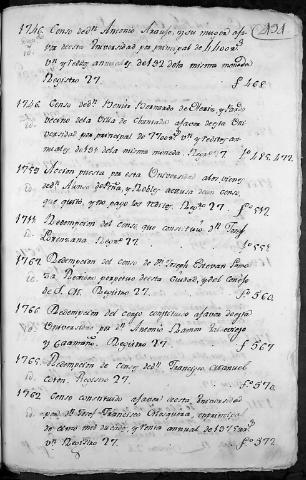 431
1746 Censo de Dn. Antonio Araujo, y su muger a fa-
vor de esta Universidad por principal de 4400 rs
vn. y reditos annuales de 132 de la misma moneda
Registro 27. fº 468.
1746 Censo de Dn. Benito Bernardo de
vecino de la Villa de Chantada a favor de esta Uni-
versidad por principal de rs. vn. y reditos an-
nuales de 198 de la misma moneda. Regº 27 fº 485. 477.
1752 Accion puesta por esta Universidad
Alonso de Peña, y Robles acerca de un censo,
que quitó, y no pago los reditos. Regº 27. fº 517
Redempcion del censo que constituyó Dn.
Lorenzana Regº 27. fº 558
1762 Redempcion del censo de Dn. Joseph Estevan
Perpetuo de esta Ciudad, y del Consejo
de S. M. Registro 27. fº 560.
1766 Redempcion del censo constituido a favor de esta
Universidad por Dn. Antonio Ramon
y Caamaño. Registro 27. fº 567
1765 Redempcion de Censo de Dn. Francisco Manuel
Registro 27. fº 570
1762 Censo constituido a favor de esta Universidad
por Dn. Josef Francisco Mosquera, su principal
de cinco mil ducados, y renta annual de 1375 rs
vn. Registro 27. fº 572